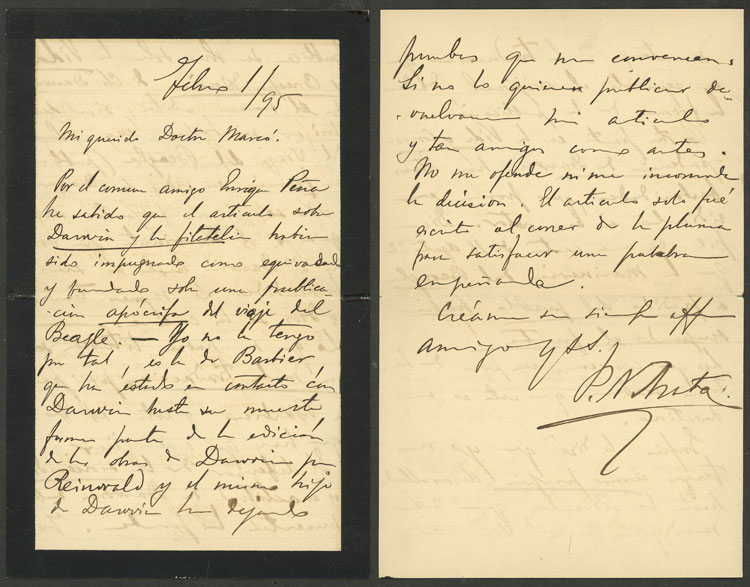 Febro 1/95
Mi querido Doctor Marcó.
Por el comun amigo Enrique Peña
he sabido que el articulo sobre
Darwin y la filatelia habia
sido impugnado como equivocado
y fundado sobre una publica-
cion apócrifa del viaje del
Beagle. — Yo no la tengo
por tal, es la de Barbier
que ha estado en contacto con
Darwin hasta su muerte
forma parte de la edición
de las obras de Darwin por
Reinwald y el mismo hijo
de Darwin ha dejando
pruebas que me convencen.
Si no lo quieren publicar de-
-vuelvanme mi articulo
y tan amigos como antes.
No me ofende ni me incomoda
la decision. El articulo solo fué
escrito al correr de la pluma
para satisfacer una palabra
empeñada.
Créame su siempre affmo
amigo y SS.
P. N. Arata.